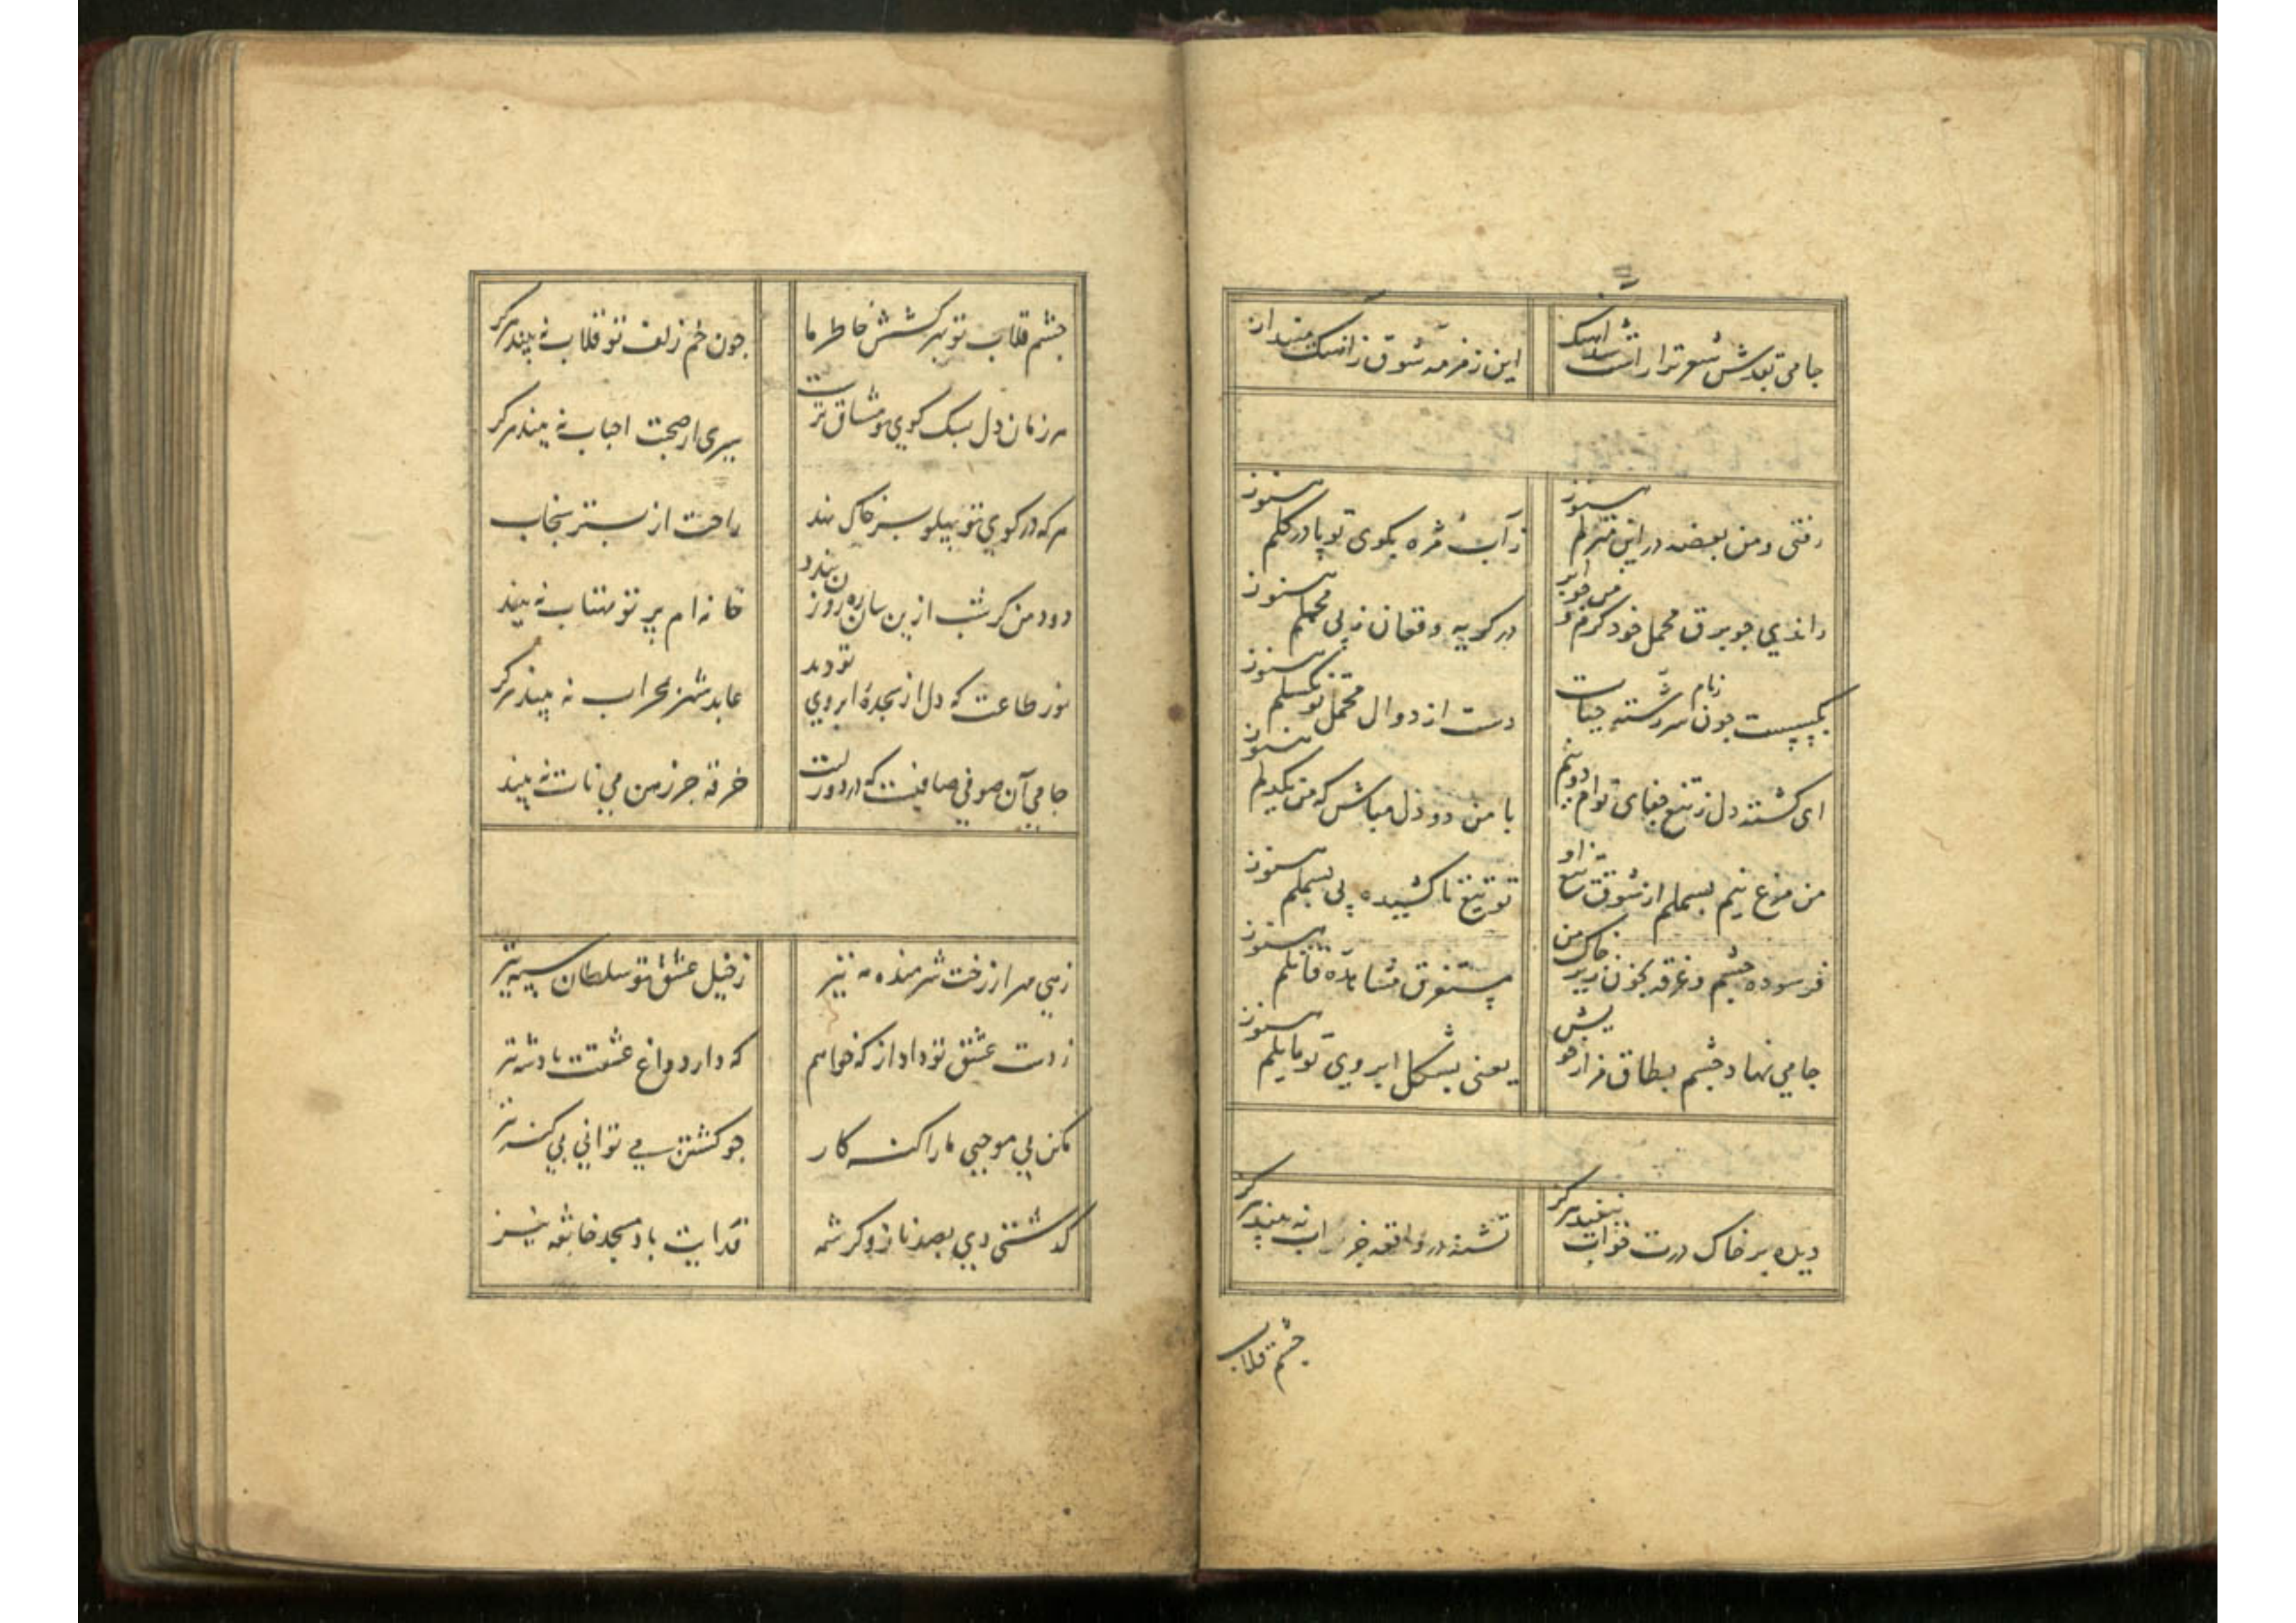 جامی شعر ترا
این زمزمه شوق
رفتی و من بغصه در این منزلم هنوز
ز آب مژه بکوی تو پا در گلم هنوز
راندی جو برق محمل خود کرم و من جو ابر
در کریه و فغان ز پی محملم هنوز
بکسست جون زمام سررشته حیات
دست از دوال محمل تو نکسلم هنوز
ای کشته دل ز تیغ جفای توام دو نیم
با من دو دل مباش که من یکدلم هنوز
من مرغ نیم بسملم از شوق تیغ تو
تو تیغ ناکشیده پی بسملم هنوز
فرسوده جشم و غرقه بخون زیر خاک من
مستغرق مشاهده قاتلم هنوز
جامی نهاد جشم بطاق مزار خویش
یعنی بشکل ابروی تو مایلم هنوز
دیده بر خاک درت خواب نبیند هرکز
تشنه در واقعه جز آب نه بیند هرکز
جشم قلاب
جشم قلاب تو بهر کشش خاطر ما
جون خم زلف تو قلاب نه بیند هرکز
هر زمان دل بسک کوی تو مشتاق ترست
سیری از صحبت احباب نه بیند هرکز
هرکه در کوی تو پهلو بسر خاک نهد
راحت از بستر سنجاب
دود من کر شب ازین سان ره روزن بندد
خانه ام پرتو مهتاب نه بیند
نور طاعت که دل از سجدهٔ ابروی تو دید
عابد شهر بمحراب نه بیند هرکز
جامی آن صوفی صافیست که در دور لبت
خرقه جز رهن می ناب نه بیند
زهی مهر از رخت شرمنده مه نیز
ز خیل عشق تو سلطان سپه نیز
ز دست عشق تو داد از که خواهم
که دارد داغ عشقت پادشه نیز
مکن بی موجبی ما را کنه کار
جو کشتن می توانی بی کنه نیز
کذشتی دی بصد ناز و کرشمه
فدایت باد مسجد خانقه نیز